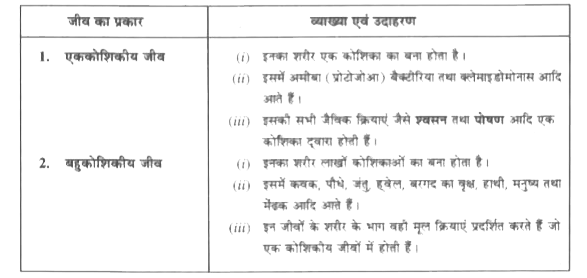 जीव का प्रकार
व्याख्या एवं उदाहरण
1. एककोशिकीय जीव
(i) इनका शरीर एक कोशिका का बना होता है।
(ii) इसमें अमीबा (प्रोटोजोआ) बैक्टीरिया तथा क्लेमाइडोमोनास आदि
आते हैं।
(iii) इसकी सभी जैविक क्रियाएं जैसे श्वसन तथा पोषण आदि एक
कोशिका द्वारा होती हैं।
2. बहुकोशिकीय जीव
(i) इनका शरीर लाखों कोशिकाओं का बना होता है।
(ii) इसमें कवक, पौधे, जंतु, ह्वेल, बरगद का वृक्ष, हाथी, मनुष्य तथा
मेंढक आदि आते हैं।
(iii) इन जीवों के शरीर के भाग वही मूल क्रियाएं प्रदर्शित करते हैं जो
एक कोशिकीय जीवों में होती हैं।